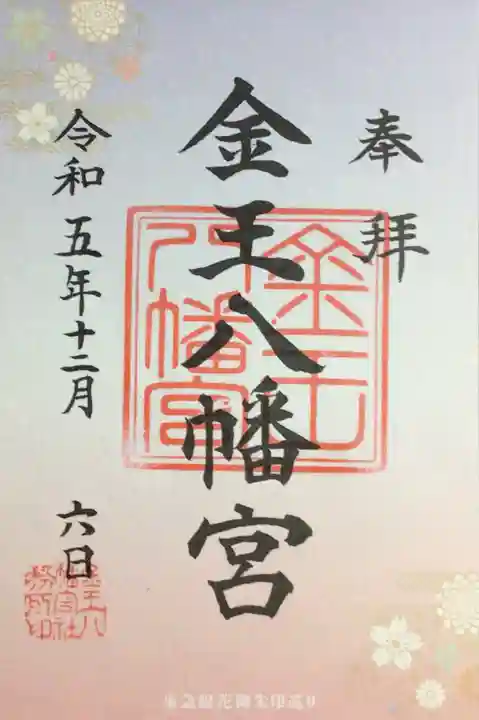 奉拝
金王八幡宮
金王八幡宮
令和五年十二月 六日
金王八幡宮社務所印
東急線花御朱印巡り